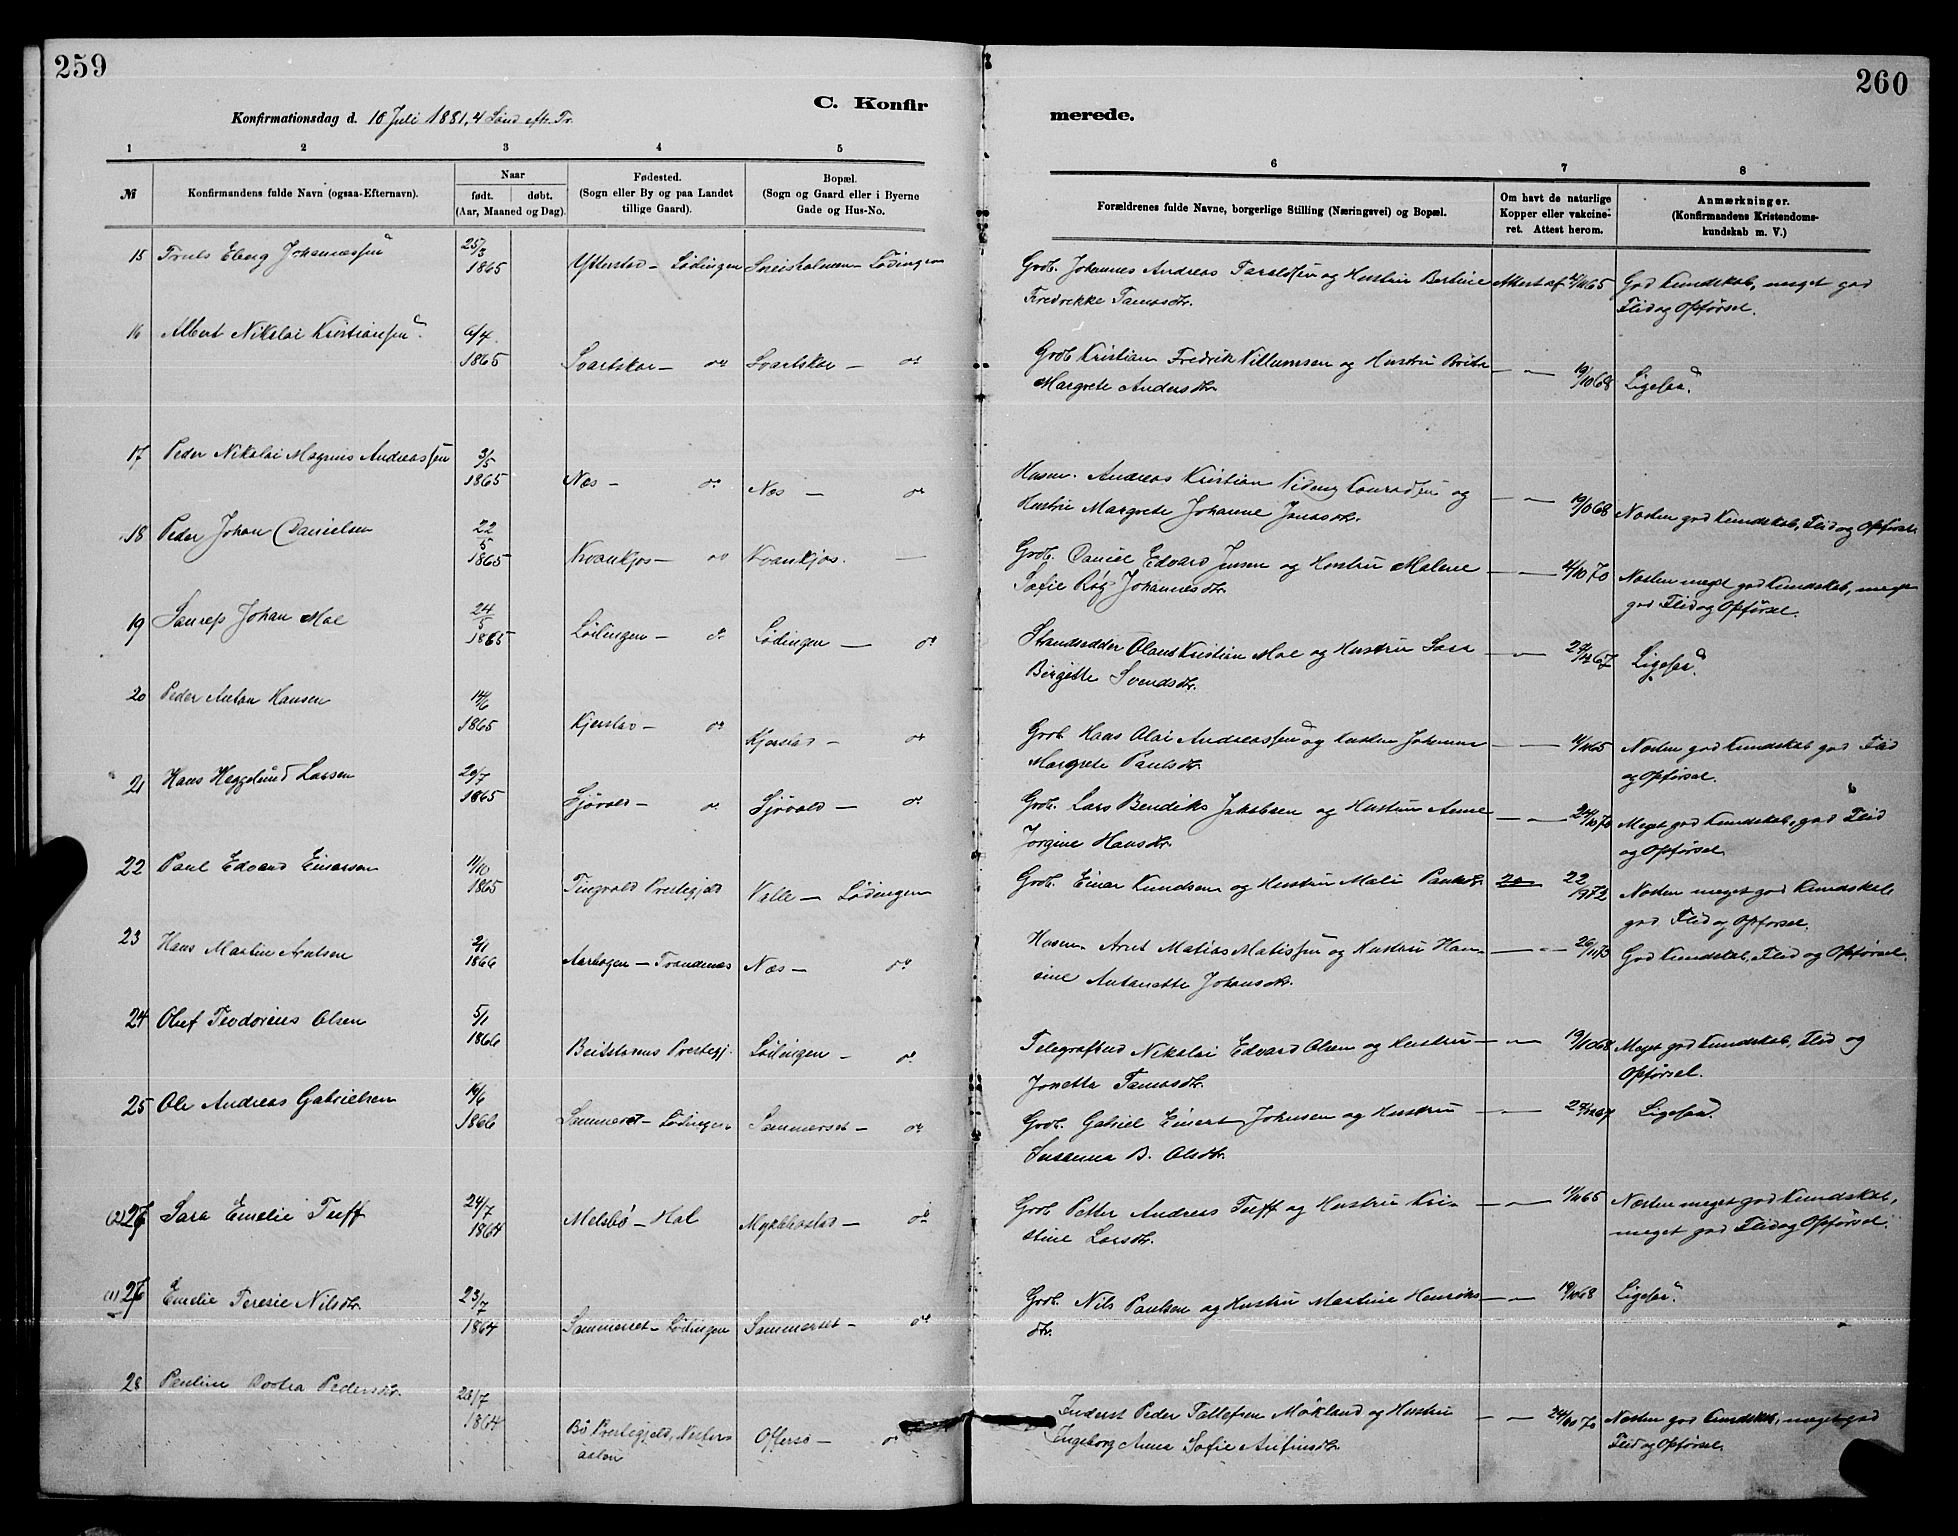 259
260
C. Konfir
merede.
Konfirmationsdag d. 10 Juli 1881, 4 Sønd eft. Tr.
1 2 3 4 5 6 7 8
№
Konfirmandens fulde Navn (ogsaa Efternavn).
Naar
født. døbt.
(Aar, Maaned og Dag).
Fødested.
(Sogn eller By og paa Landet
tillige Gaard).
Bopæl.
(Sogn og Gaard eller i Byerne
Gade og Hus-No.
Forældrenes fulde Navne, borgerlige Stilling (Næringsvei) og Bopæl.
Om havt de naturlige
Kopper eller vakcine-
ret. Attest herom.
Anmærkninger.
(Konfirmandens Kristendoms-
kundskab m. V.)
15 Truls Eberg Johannessen 25/3 1865 Ytterstad - Lødingen Sneisholmen - Lødingen
Grdb. Johannes Andreas Taraldsen og Hustru Bertine Attest af 65 God Kundskab, meget god
Fredrekke Tamasdtr. Flid og Opførsel.
16 Albert Nikolai Kristiansen 1865 Svartskar - do Svartskar - do
Grdb Kristian Fredrik Villumsen og Hustru Brita — " — 19/10 68 Ligesaa.
Margrete Andersdtr.
17 Peder Nikolai Magnus Andreassen 3/5 1865 Næs - do Næs - do
Husm. Andreas Kristian Conradsen og
Hustru Margrete Johanne Jonasdtr. — " — 19/10 68 Næsten god Kundskab, Flid og Opførsel.
18 Peder Johan Danielsen 22/5 1865 Kvankjos - do Kvankjos. —
Grdb. Daniel Edvard Jensen og Hustru Malene — " — 4/10 70 Næsten meget god Kundskab, meget
Sofie Johannesdtr. god Flid og Opførsel.
19 Johan Moe 24/5 1865 Lødingen - do Lødingen — do
Olaus Kristian Moe og Hustru Sara — " — 67 Ligesaa.
Birgitte Svendsdtr.
20 Peder Anton Hansen 14/6 1865 Kjerstad - do Kjerstad - do
Grdb. Hans Olai Andreassen og Hustru Johanna — " — 65 Næsten god Kundskab god Flid
Margrete Paulsdtr. og Opførsel.
21 Hans Heggelund Larsen 20/7 1865 Sjøvold - do Sjøvold — do
Grdb. Lars Bendiks Jakobsen og Hustru Anne — " — 24/10 70 Meget god Kundskab, god Flid
Jorgine Hansdtr. og Opførsel
22 Paul Edvard Einarsen 11/10 1865 Tingvold Prestegjeld Valle — Lødingen
Grdb. Einar Knudsen og Hustru Mali Paulsdtr. 72 Næsten meget god Kundskab
god Flid og Opførsel.
23 Hans Martin Arntsen 2/1 1866 Aarbogen - Trondenæs Næs - do
Husm. Arnt Matias Matissen og Hustru Han- — " — 26/11 73 God Kundskab, Flid og Opførsel.
sine Antonette Johansdtr.
24 Oluf Teodorius Olsen 5/1 1866 Beitstadens Prestegj. Lødingen - do
Telegrafbud Nikolai Edvard Olsen og Hustru — " — 19/10 68 Meget god Kundskab, Flid og
Jonetta Tamasdtr. Opførsel.
25 Ole Andreas Gabrielsen 1866 Sammerset - Lødingen Sammerset - do
Grdb. Gabriel Einert Johnsen og Hustru — " — 67 Ligesaa.
Susanna B. Olsdtr.
(2) 27 Sara Emelie Tuff 24/7 1864 Melsbø - Hol Mykkbostad - do
Grdb Petter Andreas Tuff og Hustru Kri- — " — 65 Næsten meget god Kundskab,
stine Larsdtr. meget god Flid og Opførsel.
(1) 26 Emelie Teresie Nilsdtr. 23/7 1864 Sammerset - Lødingen Sammerset - do
Grdb. Nils Paulsen og Hustru Martine Henriks — " — 19/10 68 Ligesaa.
dtr.
28 Pauline Dortea Pedersdtr. 1864 Bø Prestegjeld, Vester- Offersø - do
aalen
Inderst Peder Tallefsen Mökland og Hustru — " — 24/10 70 Næsten god Kundskab, meget god
Ingeborg Anna Sofie Anfinsdtr Flid og Opførsel.